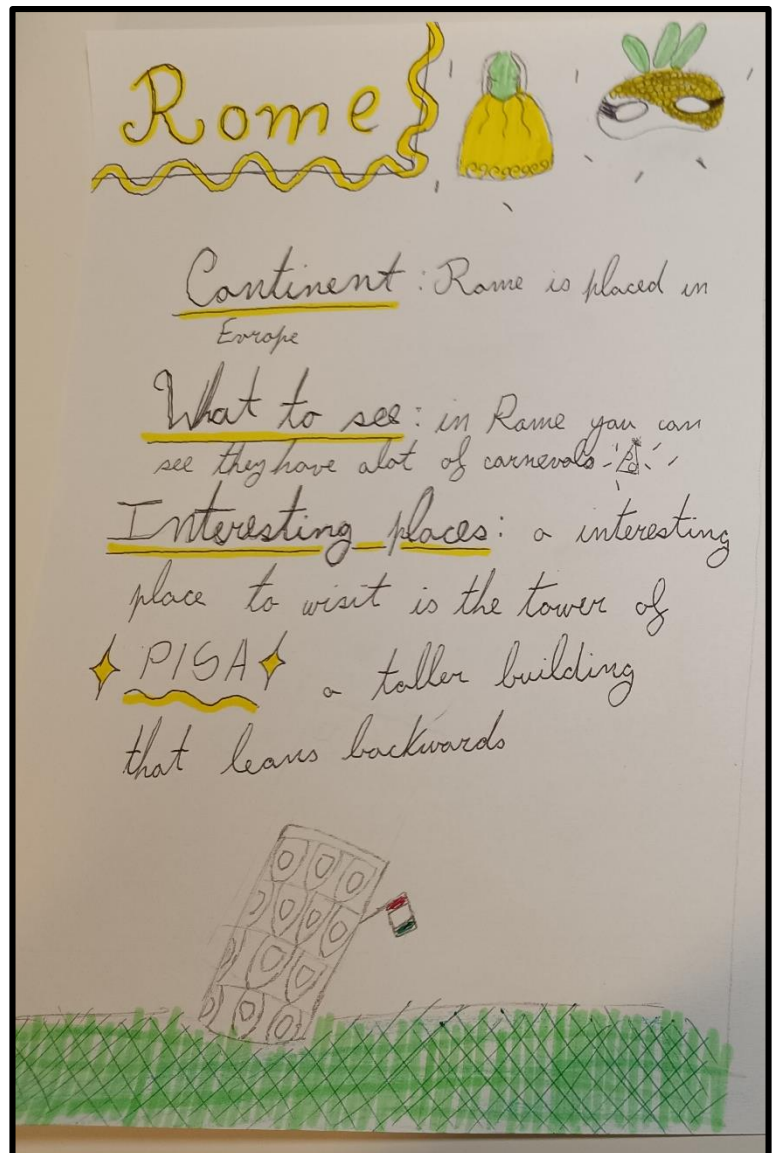 Rome
Continent : Rome is placed in
Europe
What to see : in Rome you can
see they have alot of carnevals
Interesting places : a interesting
place to wisit is the tower of
PISA a taller building
that leans backwards